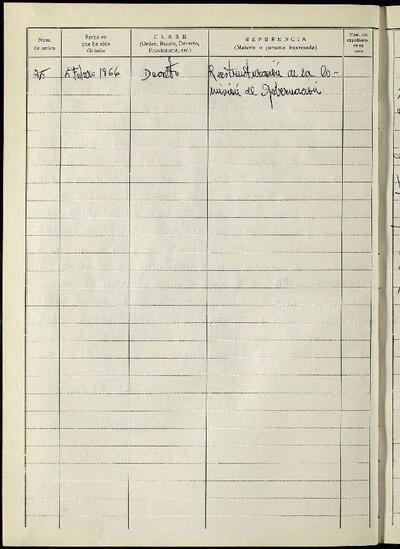 Núm. de orden
Fecha en que ha sido dictado
CLASE
(Orden, Bando, Decreto, Providencia, etc.)
REFERENCIA
(Materia o persona interesada)
Núm. del expediente en su caso
35 Febrero 1966 Decreto Reestructuración de la Co-
misión de Gobernación